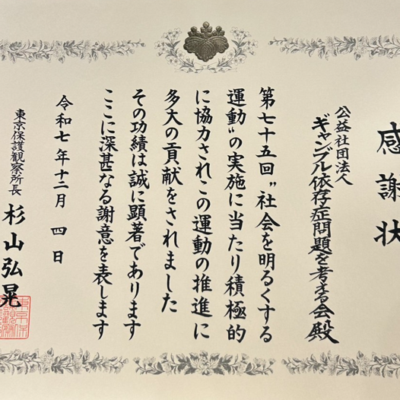 感謝状
公益社団法人
ギャンブル依存症問題を考える会殿
第七十五回〝社会を明るくする
運動〟の実施に当たり積極的
に協力されこの運動の推進に
多大の貢献をされました
その功績は誠に顕著であります
ここに深甚なる謝意を表します
令和七年十二月四日
東京保護観察所長 杉山弘晃